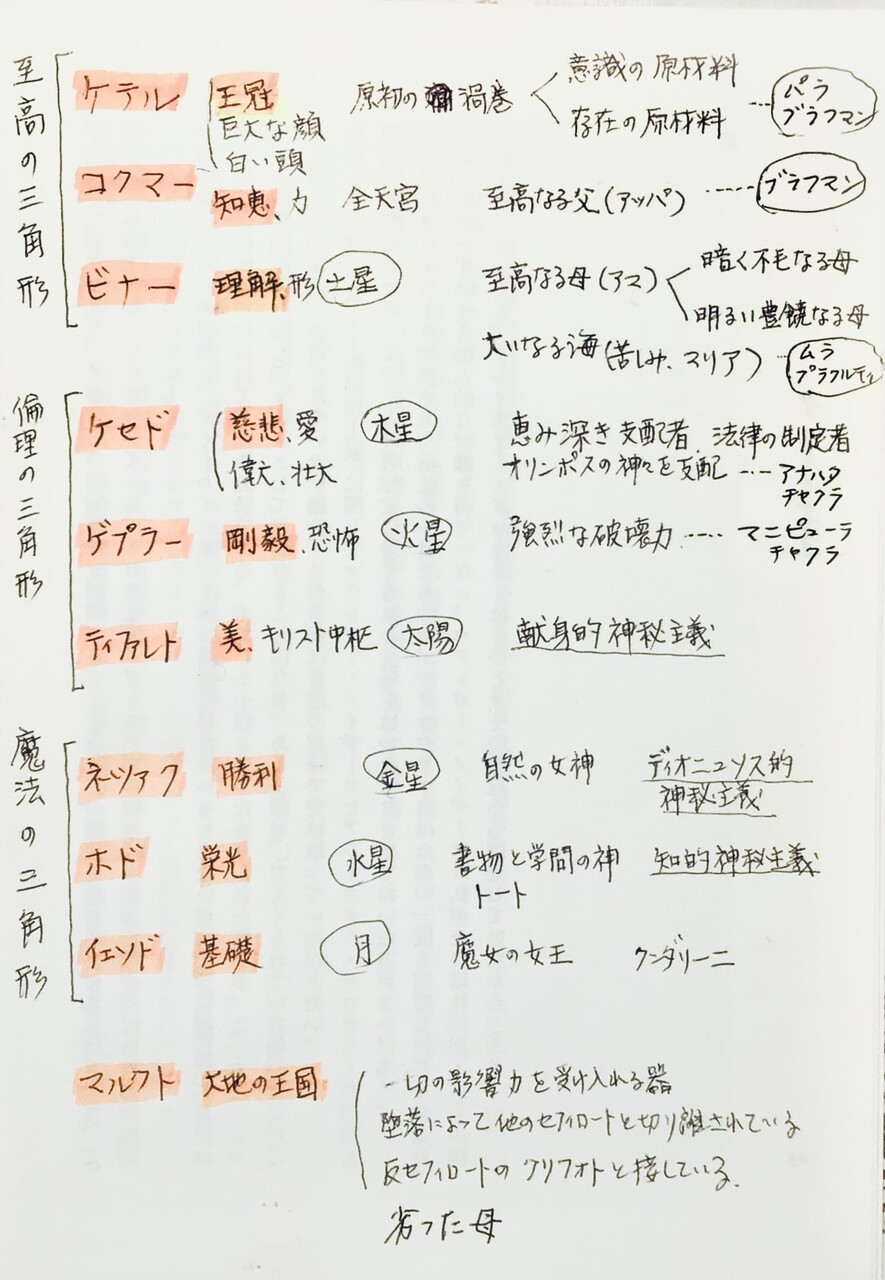 至高の三角形
ケテル 王冠 原初の渦巻 意識の原材料
巨大な顔 存在の原材料 パラ
白い頭 ブラフマン
コクマー 知恵、力 全天宮 至高なる父(アッパ) ブラフマン
ビナー 理解、形 土星 至高なる母(アマ) 暗く不毛なる母
明るい豊饒なる母
大いなる海(苦しみ、マリア) ムラ
プラクルティ
倫理の三角形
ケセド 慈悲、愛 木星 恵み深き支配者、法律の制定者
偉大、壮大 オリンポスの神々を支配 アナハタ
チャクラ
ゲプラー 剛毅、恐怖 火星 強烈な破壊力 マニピューラ
チャクラ
ティファレト 美、キリスト中枢 太陽 献身的神秘主義
魔法の三角形
ネーツァク 勝利 金星 自然の女神 ディオニュソス的
神秘主義
ホド 栄光 水星 書物と学問の神 知的神秘主義
トート
イェソド 基礎 月 魔女の女王 クンダリーニ
マルクト 大地の王国 一切の影響力を受け入れる器
堕落によって他のセフィロートと切り離されている
反セフィロートのクリフォトと接している。
劣った母